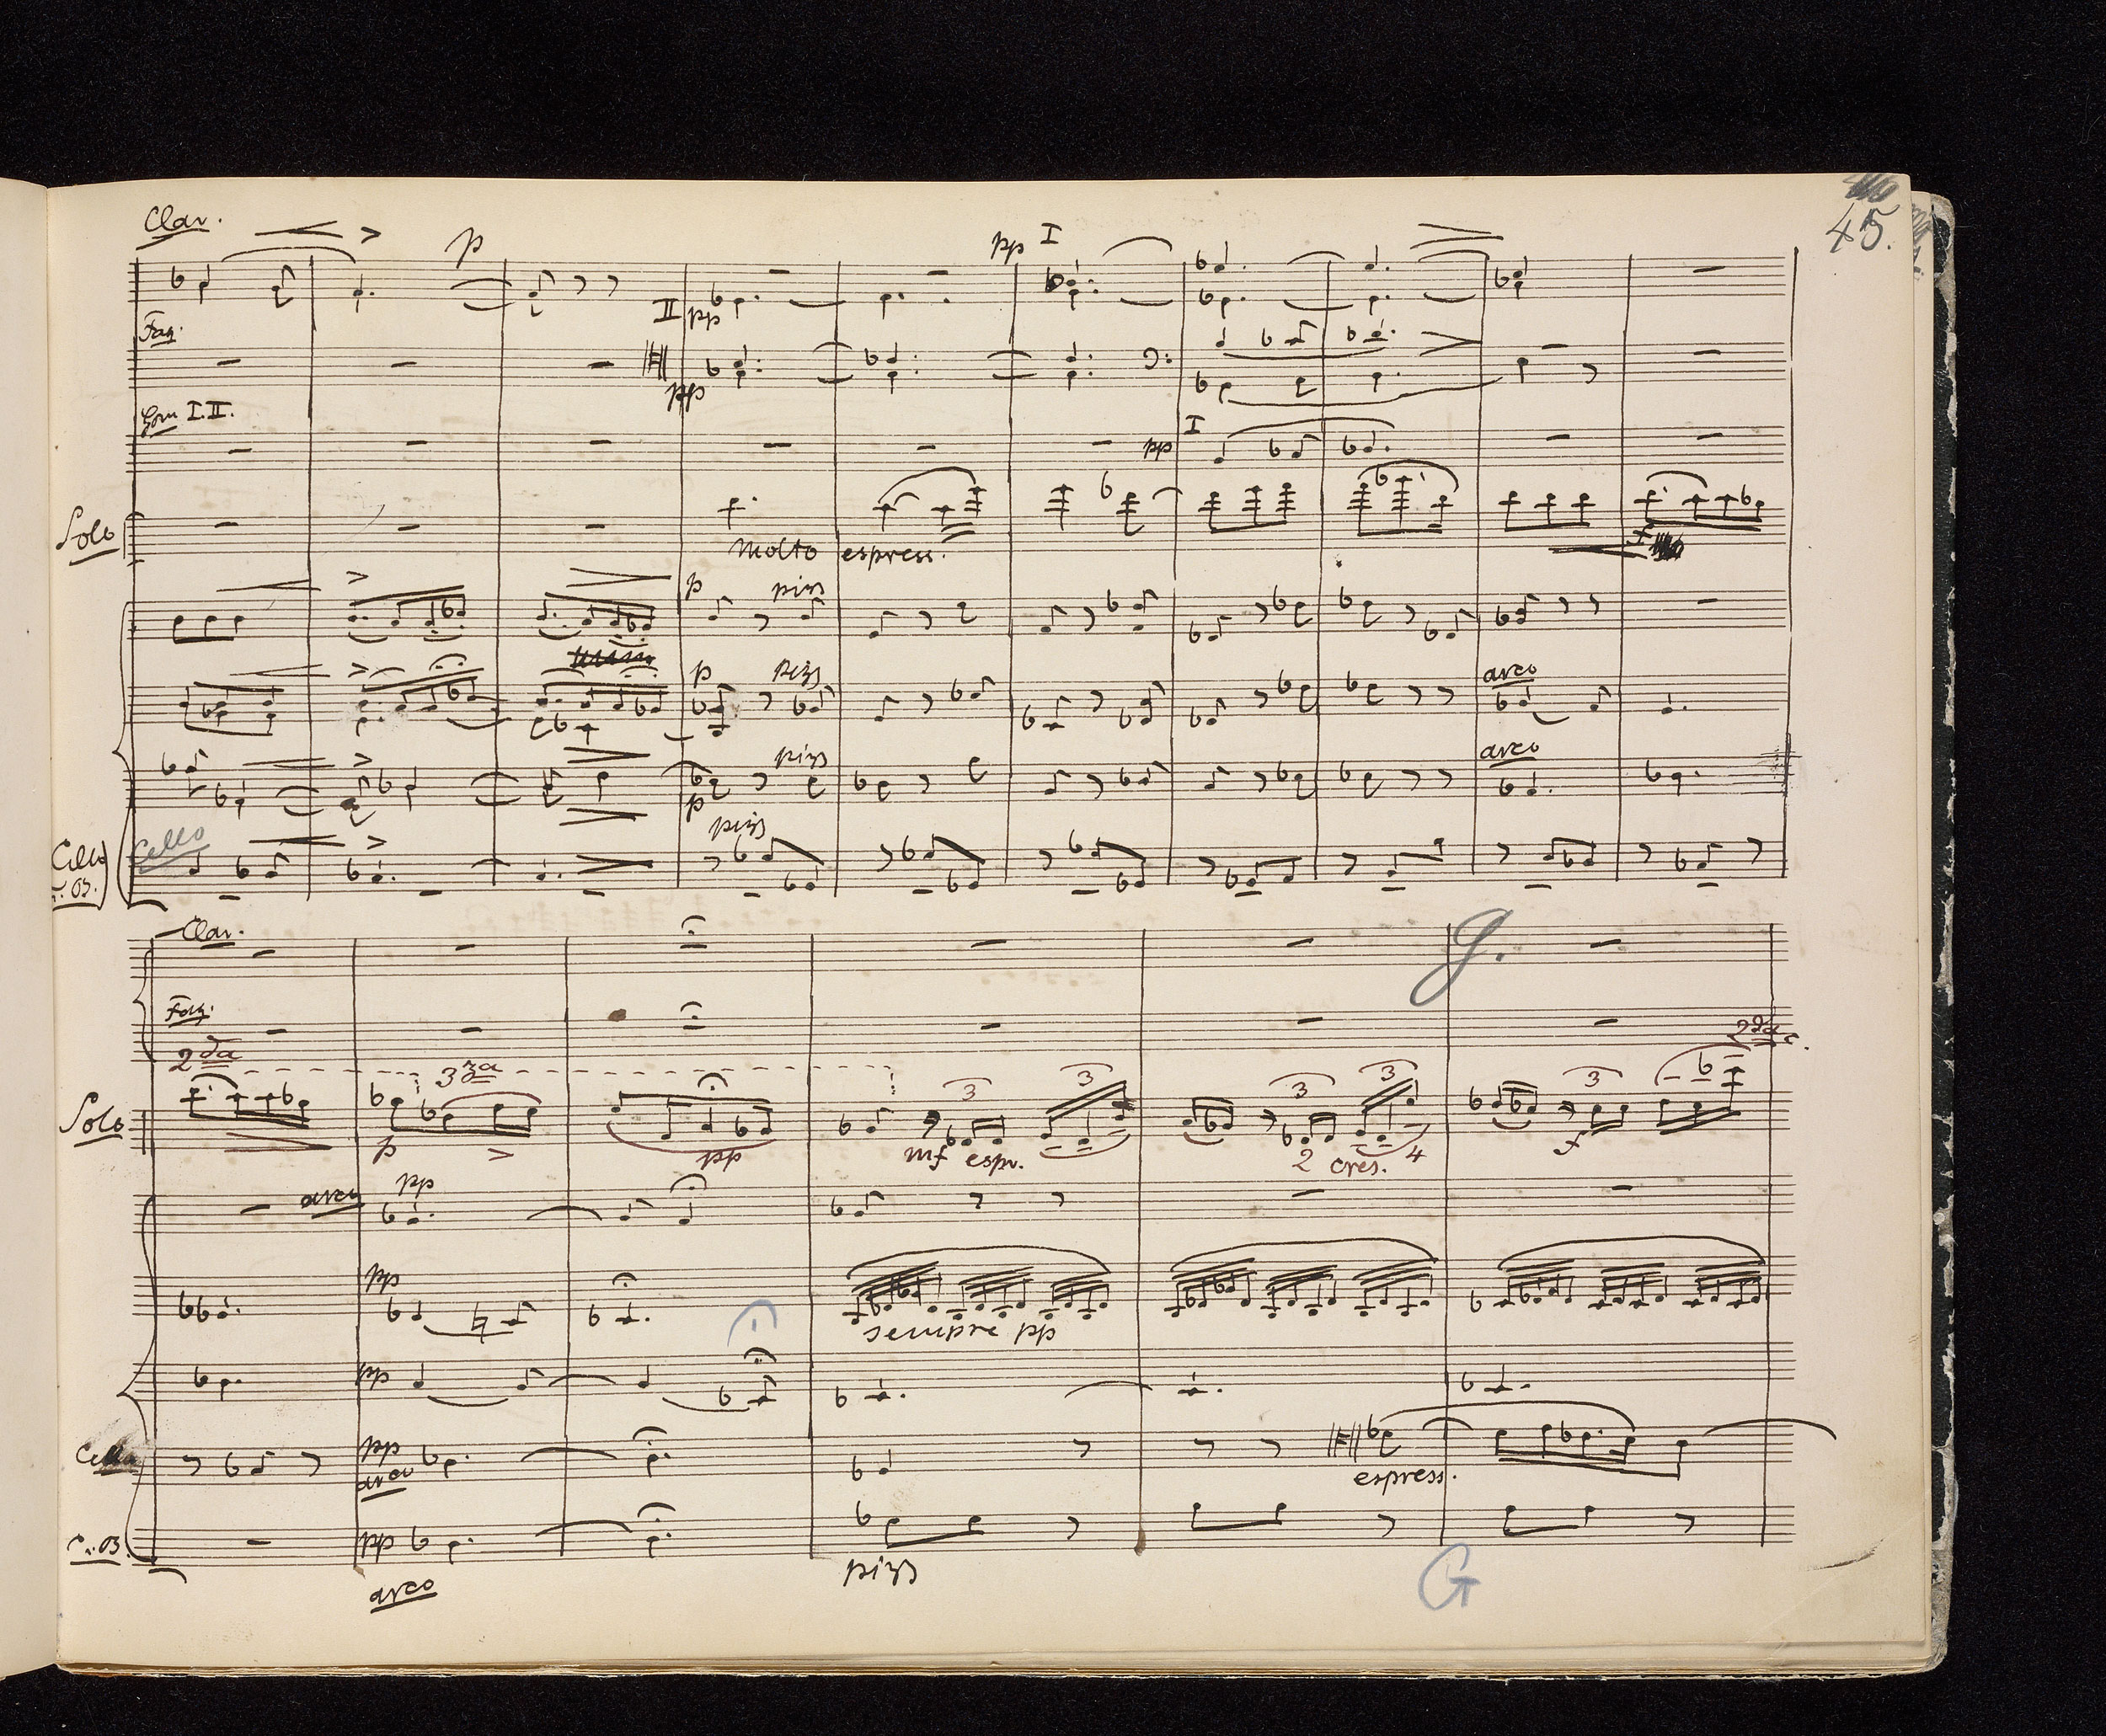 45.
Clar.
p
pp I
II pp
Fag.
pp
I. II.
I
pp
Solo
molto espress.
f
p pizz
p pizz
arco
pizz
arco
p
Cello
pizz
Cello
C. B.
Clar.
g.
Fag.
2da
3za
2da c.
3 3 3 3 3
Solo
p
pp
mf espr.
2 cres. 4
f
arco
pp
pp
sempre pp
pp
Cello
pp
arco
espress.
C. B.
pp
arco
pizz
G